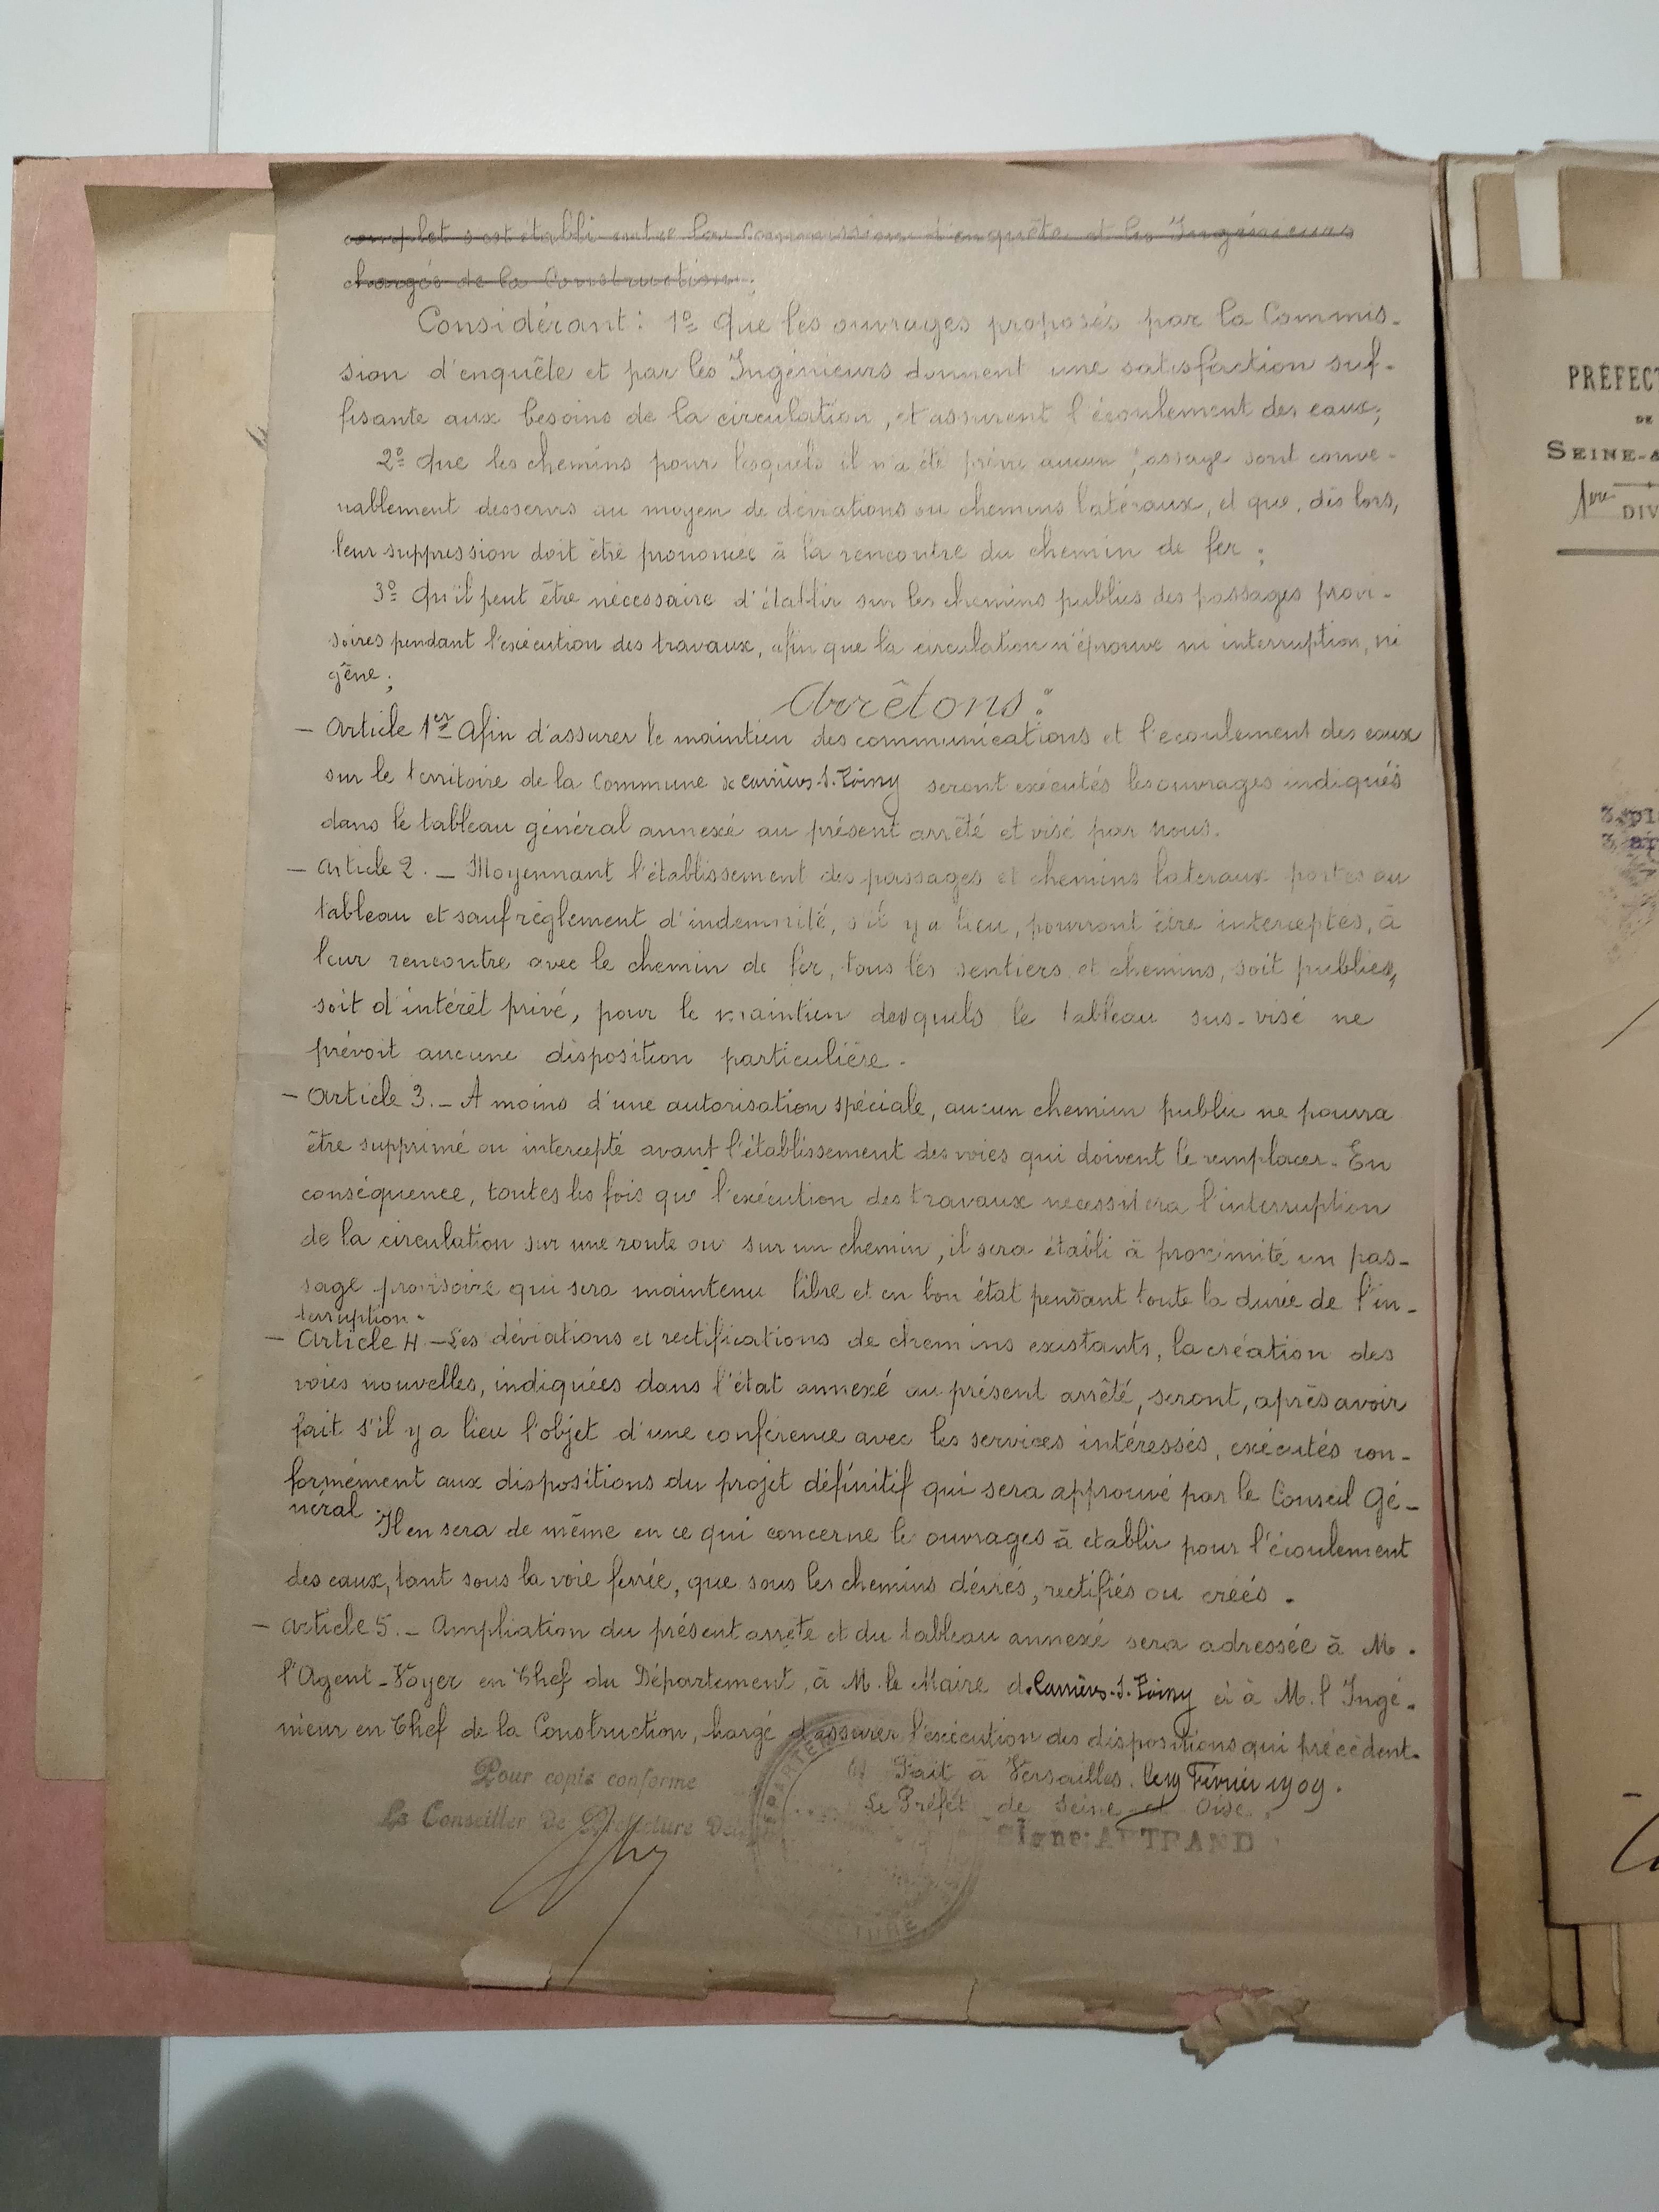 complet s'est établi entre la Commission d'enquête et les Ingénieurs
chargés de la Construction;
Considérant: 1º Que les ouvrages proposés par la Commis-
sion d'enquête et par les Ingénieurs donnent une satisfaction suf-
fisante aux besoins de la circulation, et assurent l'écoulement des eaux;
2º Que les chemins pour lesquels il n'a été prévu aucun passage sont conve-
nablement desservis au moyen de déviations ou chemins latéraux, et que, dès lors,
leur suppression doit être prononcée à la rencontre du chemin de fer;
3º Qu'il peut être nécessaire d'établir sur les chemins publics des passages provi-
soires pendant l'exécution des travaux, afin que la circulation n'éprouve ni interruption, ni
gêne;
Arrêtons:
- Article 1er Afin d'assurer le maintien des communications et l'écoulement des eaux
sur le territoire de la Commune de Carrières-s.-Poissy seront exécutés les ouvrages indiqués
dans le tableau général annexé au présent arrêté et visé par nous.
- Article 2. - Moyennant l'établissement des passages et chemins latéraux portés au
tableau et sauf règlement d'indemnité, s'il y a lieu, pourront être interceptés, à
leur rencontre avec le chemin de fer, tous les sentiers et chemins, soit publics,
soit d'intérêt privé, pour le maintien desquels le tableau sus-visé ne
prévoit aucune disposition particulière.
- Article 3. - A moins d'une autorisation spéciale, aucun chemin public ne pourra
être supprimé ou intercepté avant l'établissement des voies qui doivent le remplacer. En
conséquence, toutes les fois que l'exécution des travaux nécessitera l'interruption
de la circulation sur une route ou sur un chemin, il sera établi à proximité un pas-
sage provisoire qui sera maintenu libre et en bon état pendant toute la durée de l'in-
terruption.
- Article 4 - Les déviations et rectifications de chemins existants, la création des
voies nouvelles, indiquées dans l'état annexé au présent arrêté, seront, après avoir
fait s'il y a lieu l'objet d'une conférence avec les services intéressés, exécutés con-
formément aux dispositions du projet définitif qui sera approuvé par le Conseil Gé-
néral.
Il en sera de même en ce qui concerne le ouvrages à établir pour l'écoulement
des eaux, tant sous la voie ferrée, que sous les chemins déviés, rectifiés ou créés.
- Article 5. - Ampliation du présent arrêté et du tableau annexé sera adressée à M.
l'Agent-Voyer en Chef du Département, à M. le Maire de Carrières-s.-Poissy et à M. l'Ingé-
nieur en Chef de la Construction, chargé d'assurer l'exécution des dispositions qui précèdent.
Fait à Versailles, le 19 Février 1909.
Pour copie conforme
Le Préfet de Seine et Oise,
Le Conseiller de Préfecture Délégué
Signé: AUTRAND
PRÉFECT
DE
SEINE-&
1ère
DIV